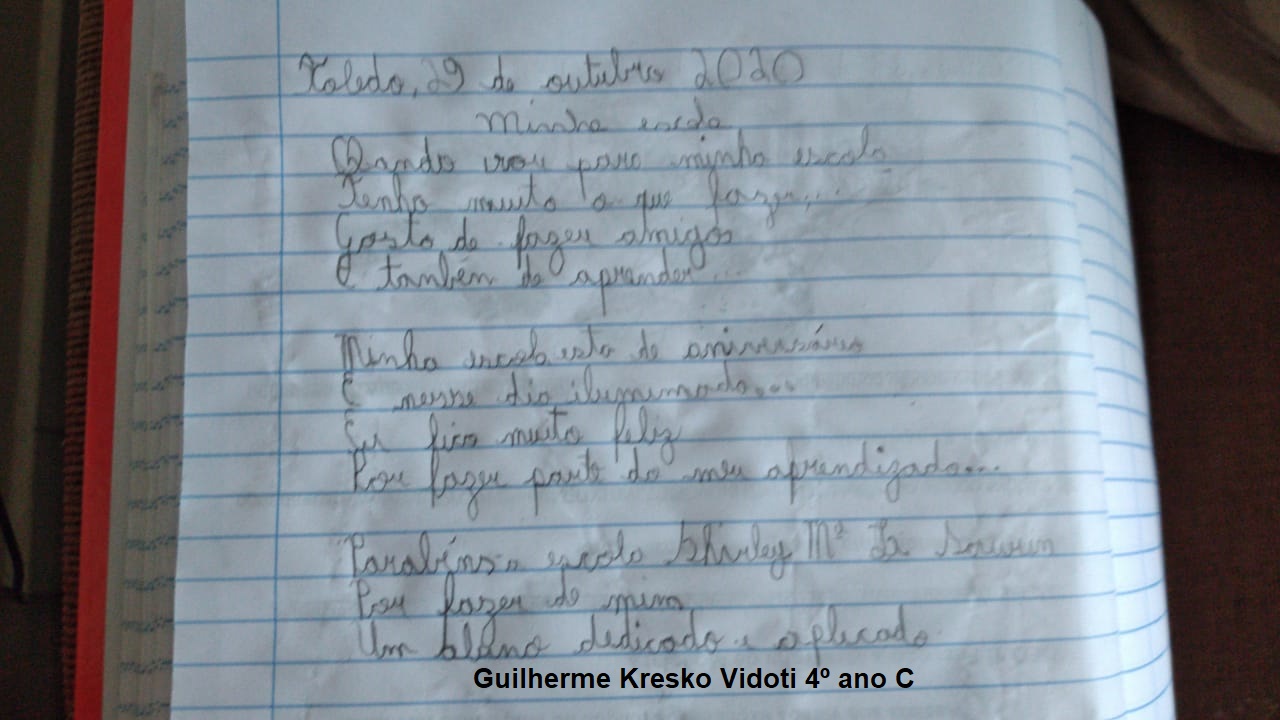 Toledo, 29 de outubro 2020
Minha escola
Quando vou para minha escola
Tenho muito o que fazer...
Gosto de fazer amigos
E também de aprender...
Minha escola esta de aniversário
E nesse dia iluminado...
Eu fico muito feliz
Por fazer parte do meu aprendizado...
Parabéns a escola Shirley Mª
Por fazer de mim
Um aluno dedicado e aplicado
Guilherme Kresko Vidoti 4º ano C